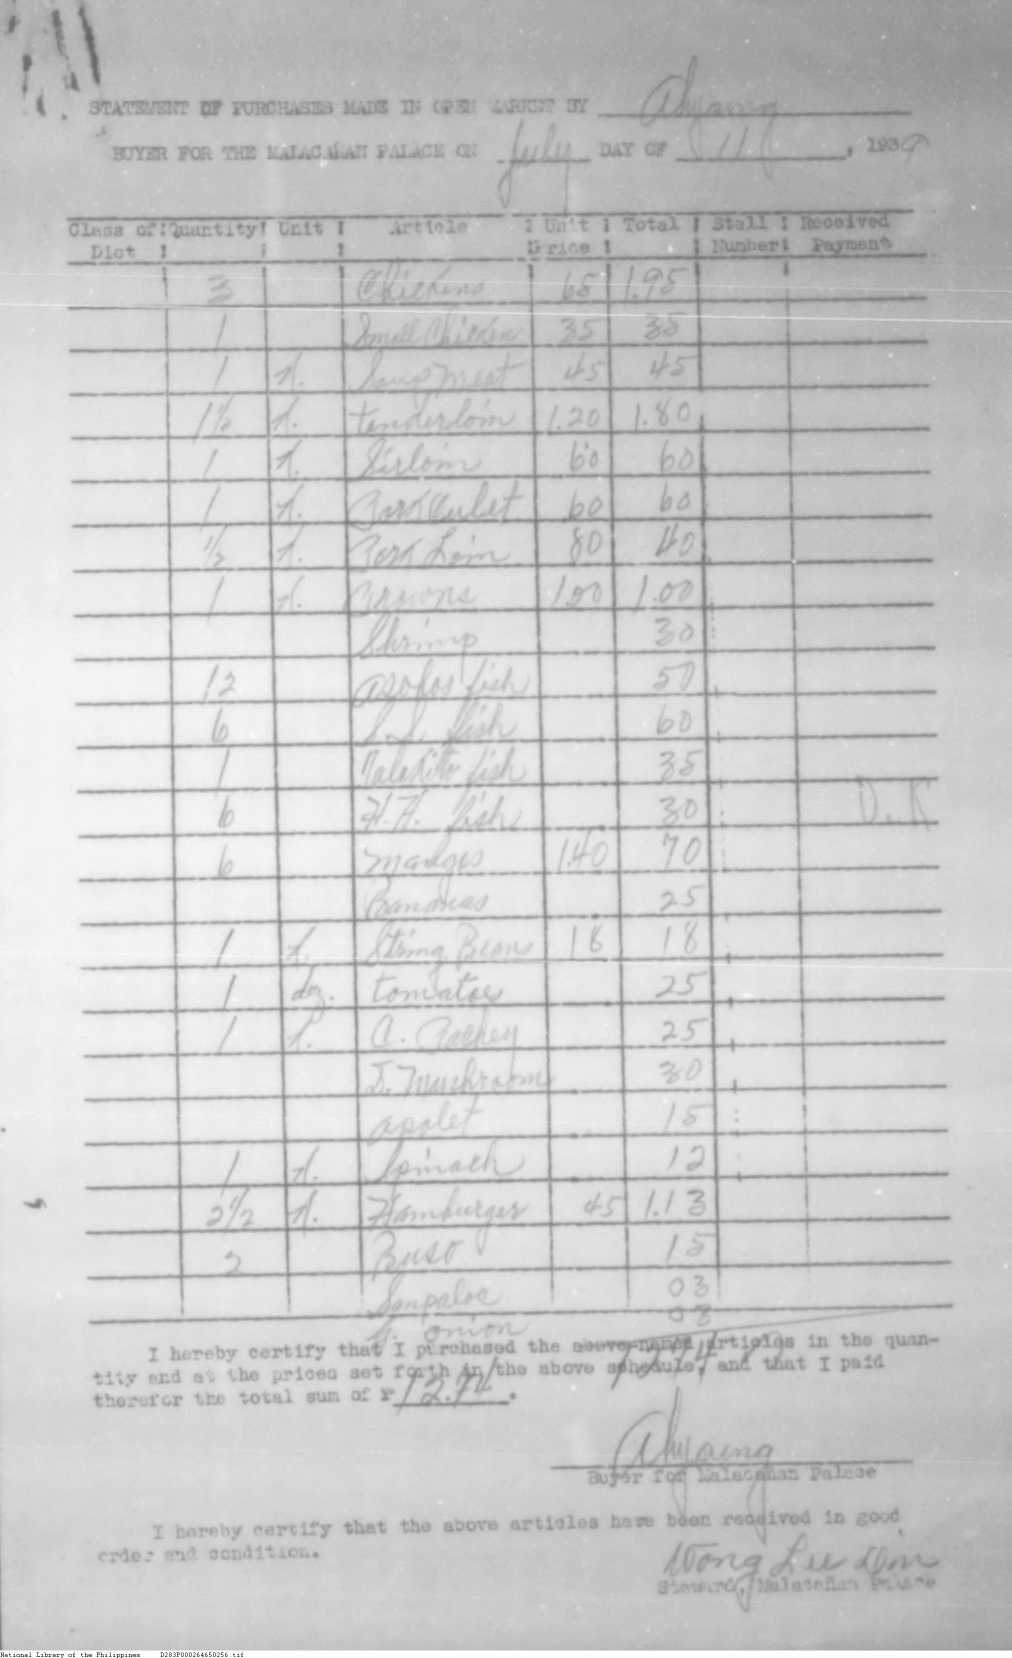 STATEMENT OF PURCHASES MADE IN OPEN MARKET BY Ahyaing
BUYER FOR THE MALACAÑAN PALACE ON July DAY OF 11, 1939
Class of Quantity Unit Article Unit Total Stall Received
Dist Price Number Payment
3 Chickens 65 1.95
1 Small Chicken 35 35
1 K. Soup meat 45 45
1 1/2 K. tenderloin 1.20 1.80
1 K. Sirloin 60 60
1 K. Pork Cutlet 60 60
1/2 K. Pork Loin 80 40
1 K. Prowns 1.00 1.00
Shrimp 30
12 asohos fish 50
6 L.L. fish 60
1 fish 35
6 H.H. fish 30
O.K
6 mangos 1.40 70
Bananas 25
1 K. String Beans 18 18
1 dog. tomatoes 25
1 K. C. 25
mushroom 30
apolet 15
1 K. Spinach 12
2 1/2 K. Hamburger 45 1.13
2 Buso 15
Sanpaloc 03
G. onion 08
I hereby certify that I purchased the above-named articles in the quan-
tity and at the prices set forth in the above schedule, and that I paid
therefor the total sum of ₱
Ahyaing
Buyer for Malacañan Palace
I hereby certify that the above articles have been received in good
order and condition.
Wong Lee
Steward, Malacañan Palace
National Library of the Philippines D283P000264650256.tif